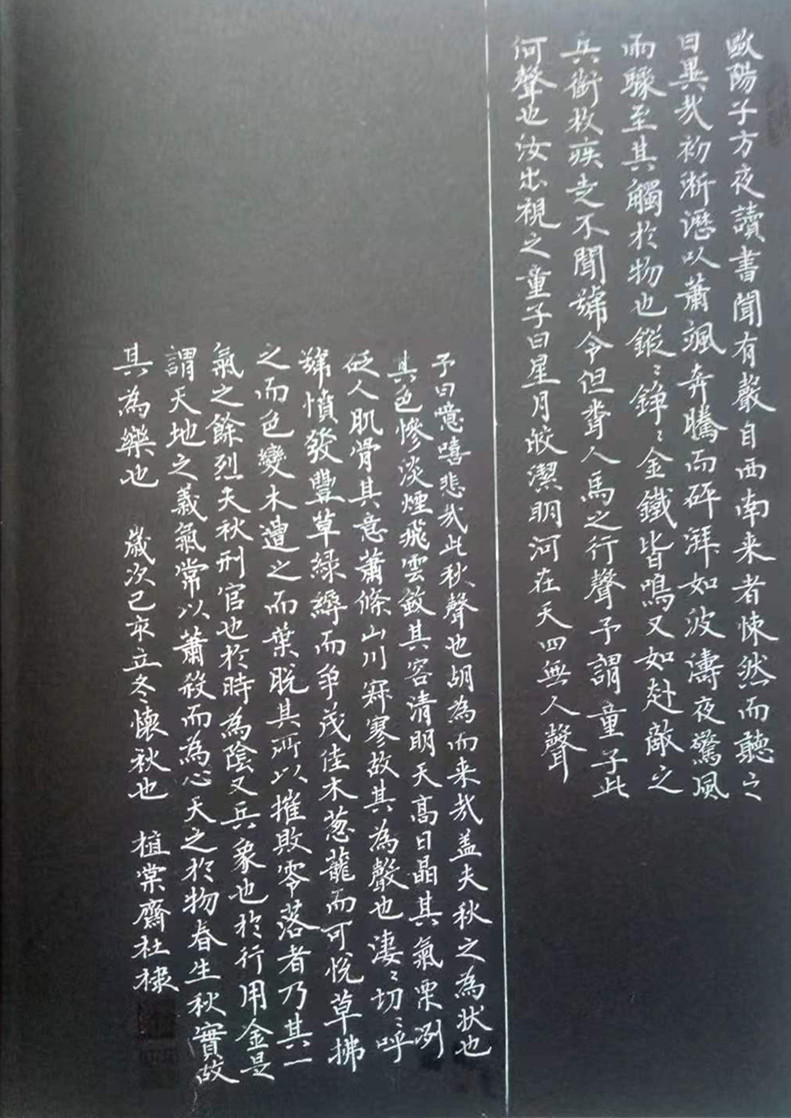 歐陽子方夜讀書聞有聲自西南来者悚然而聽之
曰異哉初淅瀝以蕭颯奔騰而砰湃如波濤夜驚風
雨驟至其觸於物也鏦〻錚〻金鐵皆鳴又如赴敵之
兵銜枚疾走不聞號令但聞人馬之行聲予謂童子此
何聲也汝出視之童子曰星月皎潔明河在天四無人聲
予曰噫嘻悲哉此秋聲也胡為而来哉盖夫秋之為状也
其色慘淡煙飛雲斂其容清明天高日晶其氣栗冽
砭人肌骨其意蕭條山川寂寥故其為聲也淒〻切〻呼
號憤發豐草綠縟而爭茂佳木葱蘢而可悅草拂
之而色變木遭之而葉脫其所以摧敗零落者乃其一
氣之餘烈夫秋刑官也於時為陰又兵象也於行用金是
謂天地之義氣常以肅殺而為心天之於物春生秋實故
其為樂也 歲次己亥立冬懷秋也 植棠齋杜棣